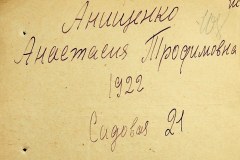 Анищенко
Анастасия Трофимовна
1922
Садовая 21